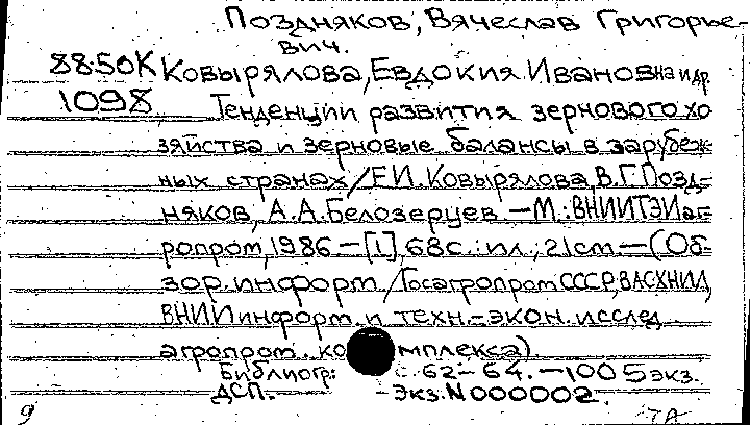 Поздняков, Вячеслав Григорье-
вич.
88-50К Ковырялова, Евдокия Ивановна и др.
1098 Тенденции развития зернового хо
зяйства и зерновые балансы в зарубеж-
ных странах / Е.И. Ковырялова, В.Г. Позд-
няков, А.А. Белозерцев. — М.: ВНИИТЭИаг-
ропром, 1986. — [1], 68с.: ил.; 21см — (Об-
зор. информ. / Госагропром СССР, ВАСХНИЛ,
ВНИИ информ. и техн.-экон. исслед.
агропром. комплекса).
Библиогр.: с. 62-64. — 1005 экз.
ДСП. - Экз. N 000002.
9